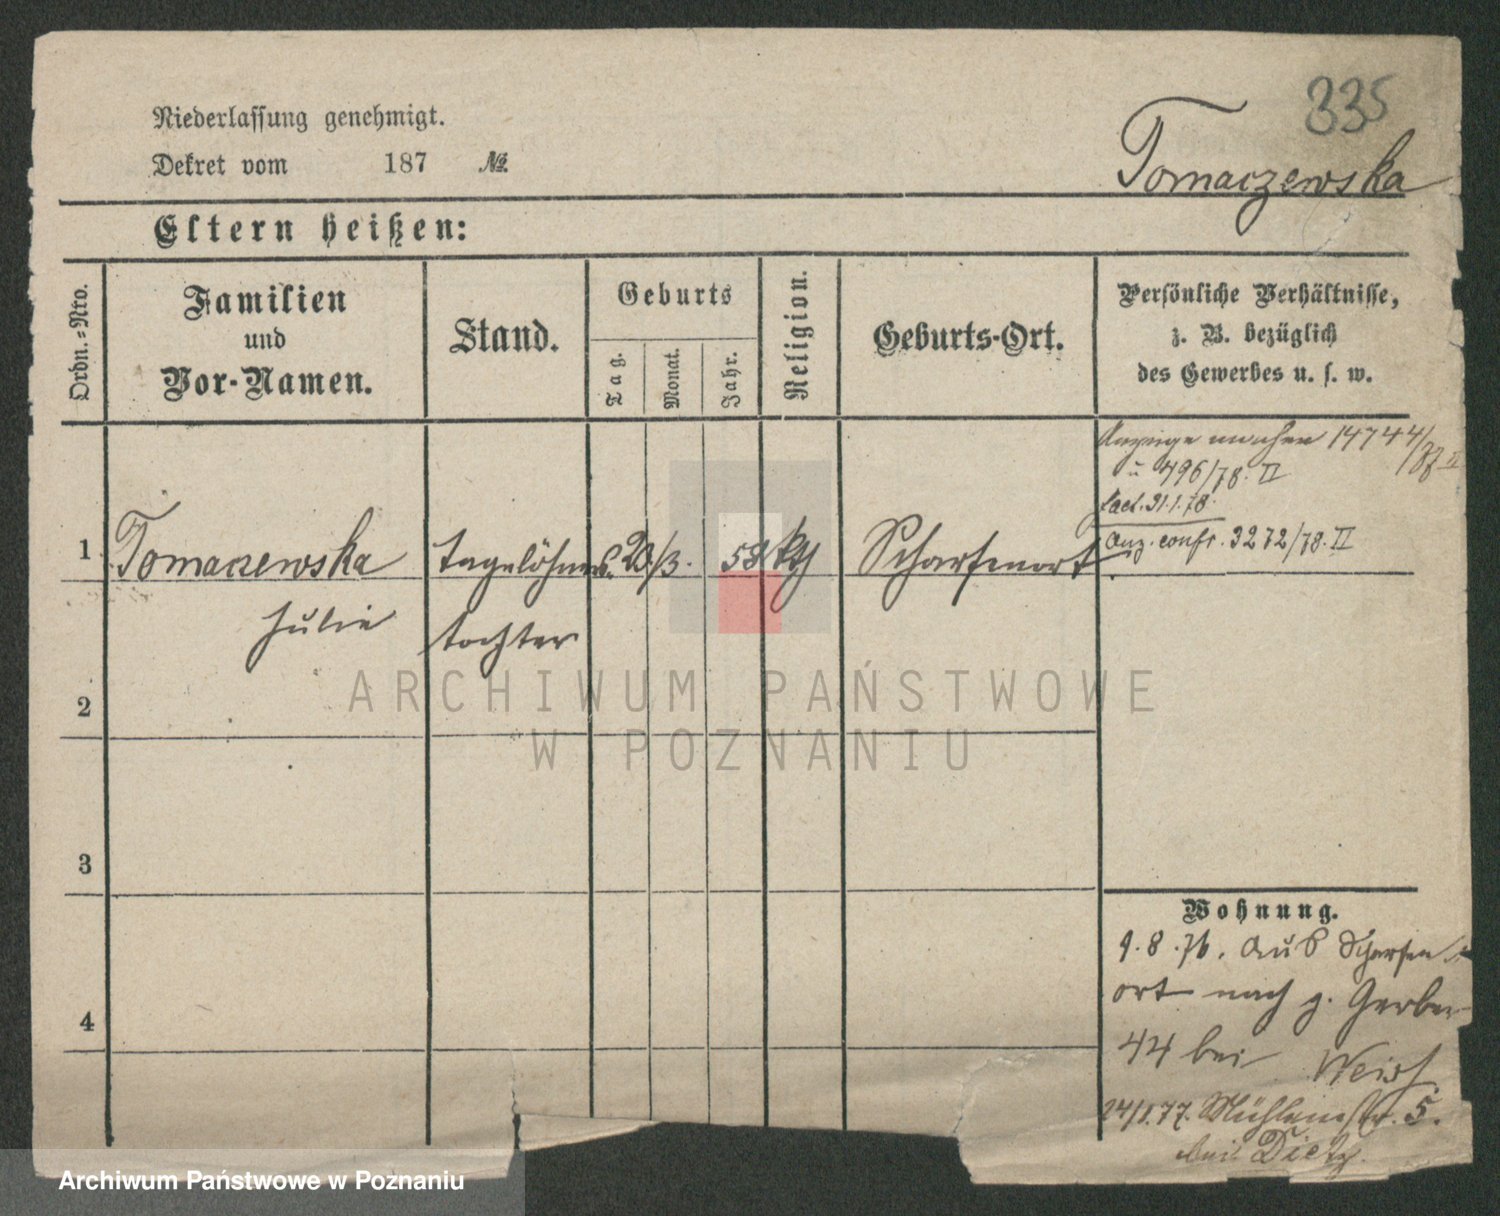 335
Niederlassung genehmigt.
Dekret vom 187 №
Tomaczewska
Eltern heißen:
Ordn.=Nro.
Familien
und
Vor-Namen.
Stand.
Geburts
Tag.
Monat.
Jahr.
Religion.
Geburts-Ort.
Persönliche Verhältnisse,
z. B. bezüglich
des Gewerbes u. s. w.
Anzeige machen 14744/
u 496/78. II
31.1.78.
Anz. 3272/78. II
1 Tomaczewska Tagelöhners 20/3. 58 Scharfenort
Julie tochter
2
3
4
Wohnung.
9.8.76. aus Scharfen
ort nach g. Gerber
44 bei Weiss
24/1.77. Mühlenstr. 5.
bei Dietz.
ARCHIWUM PAŃSTWOWE
W POZNANIU
Archiwum Państwowe w Poznaniu